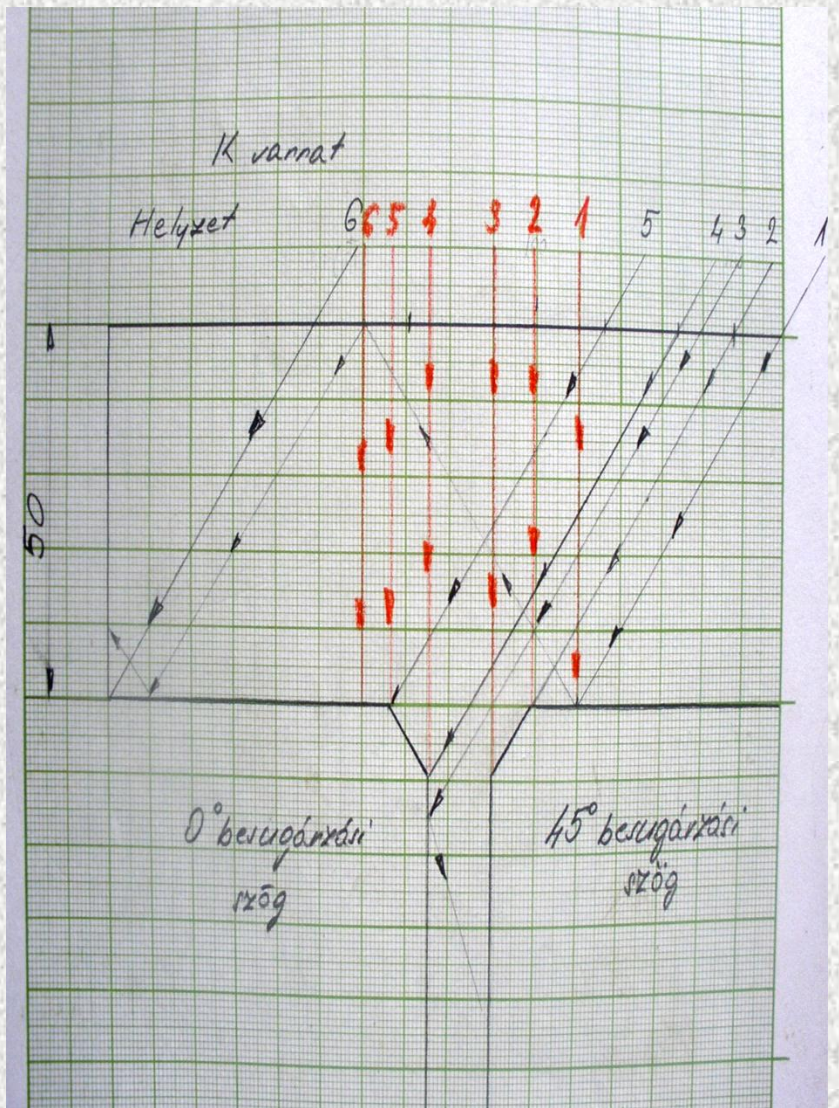 K varrat
Helyzet 6 6 5 4 3 2 1 5 4 3 2 1
50
0° besugárzási
szög
45° besugárzási
szög